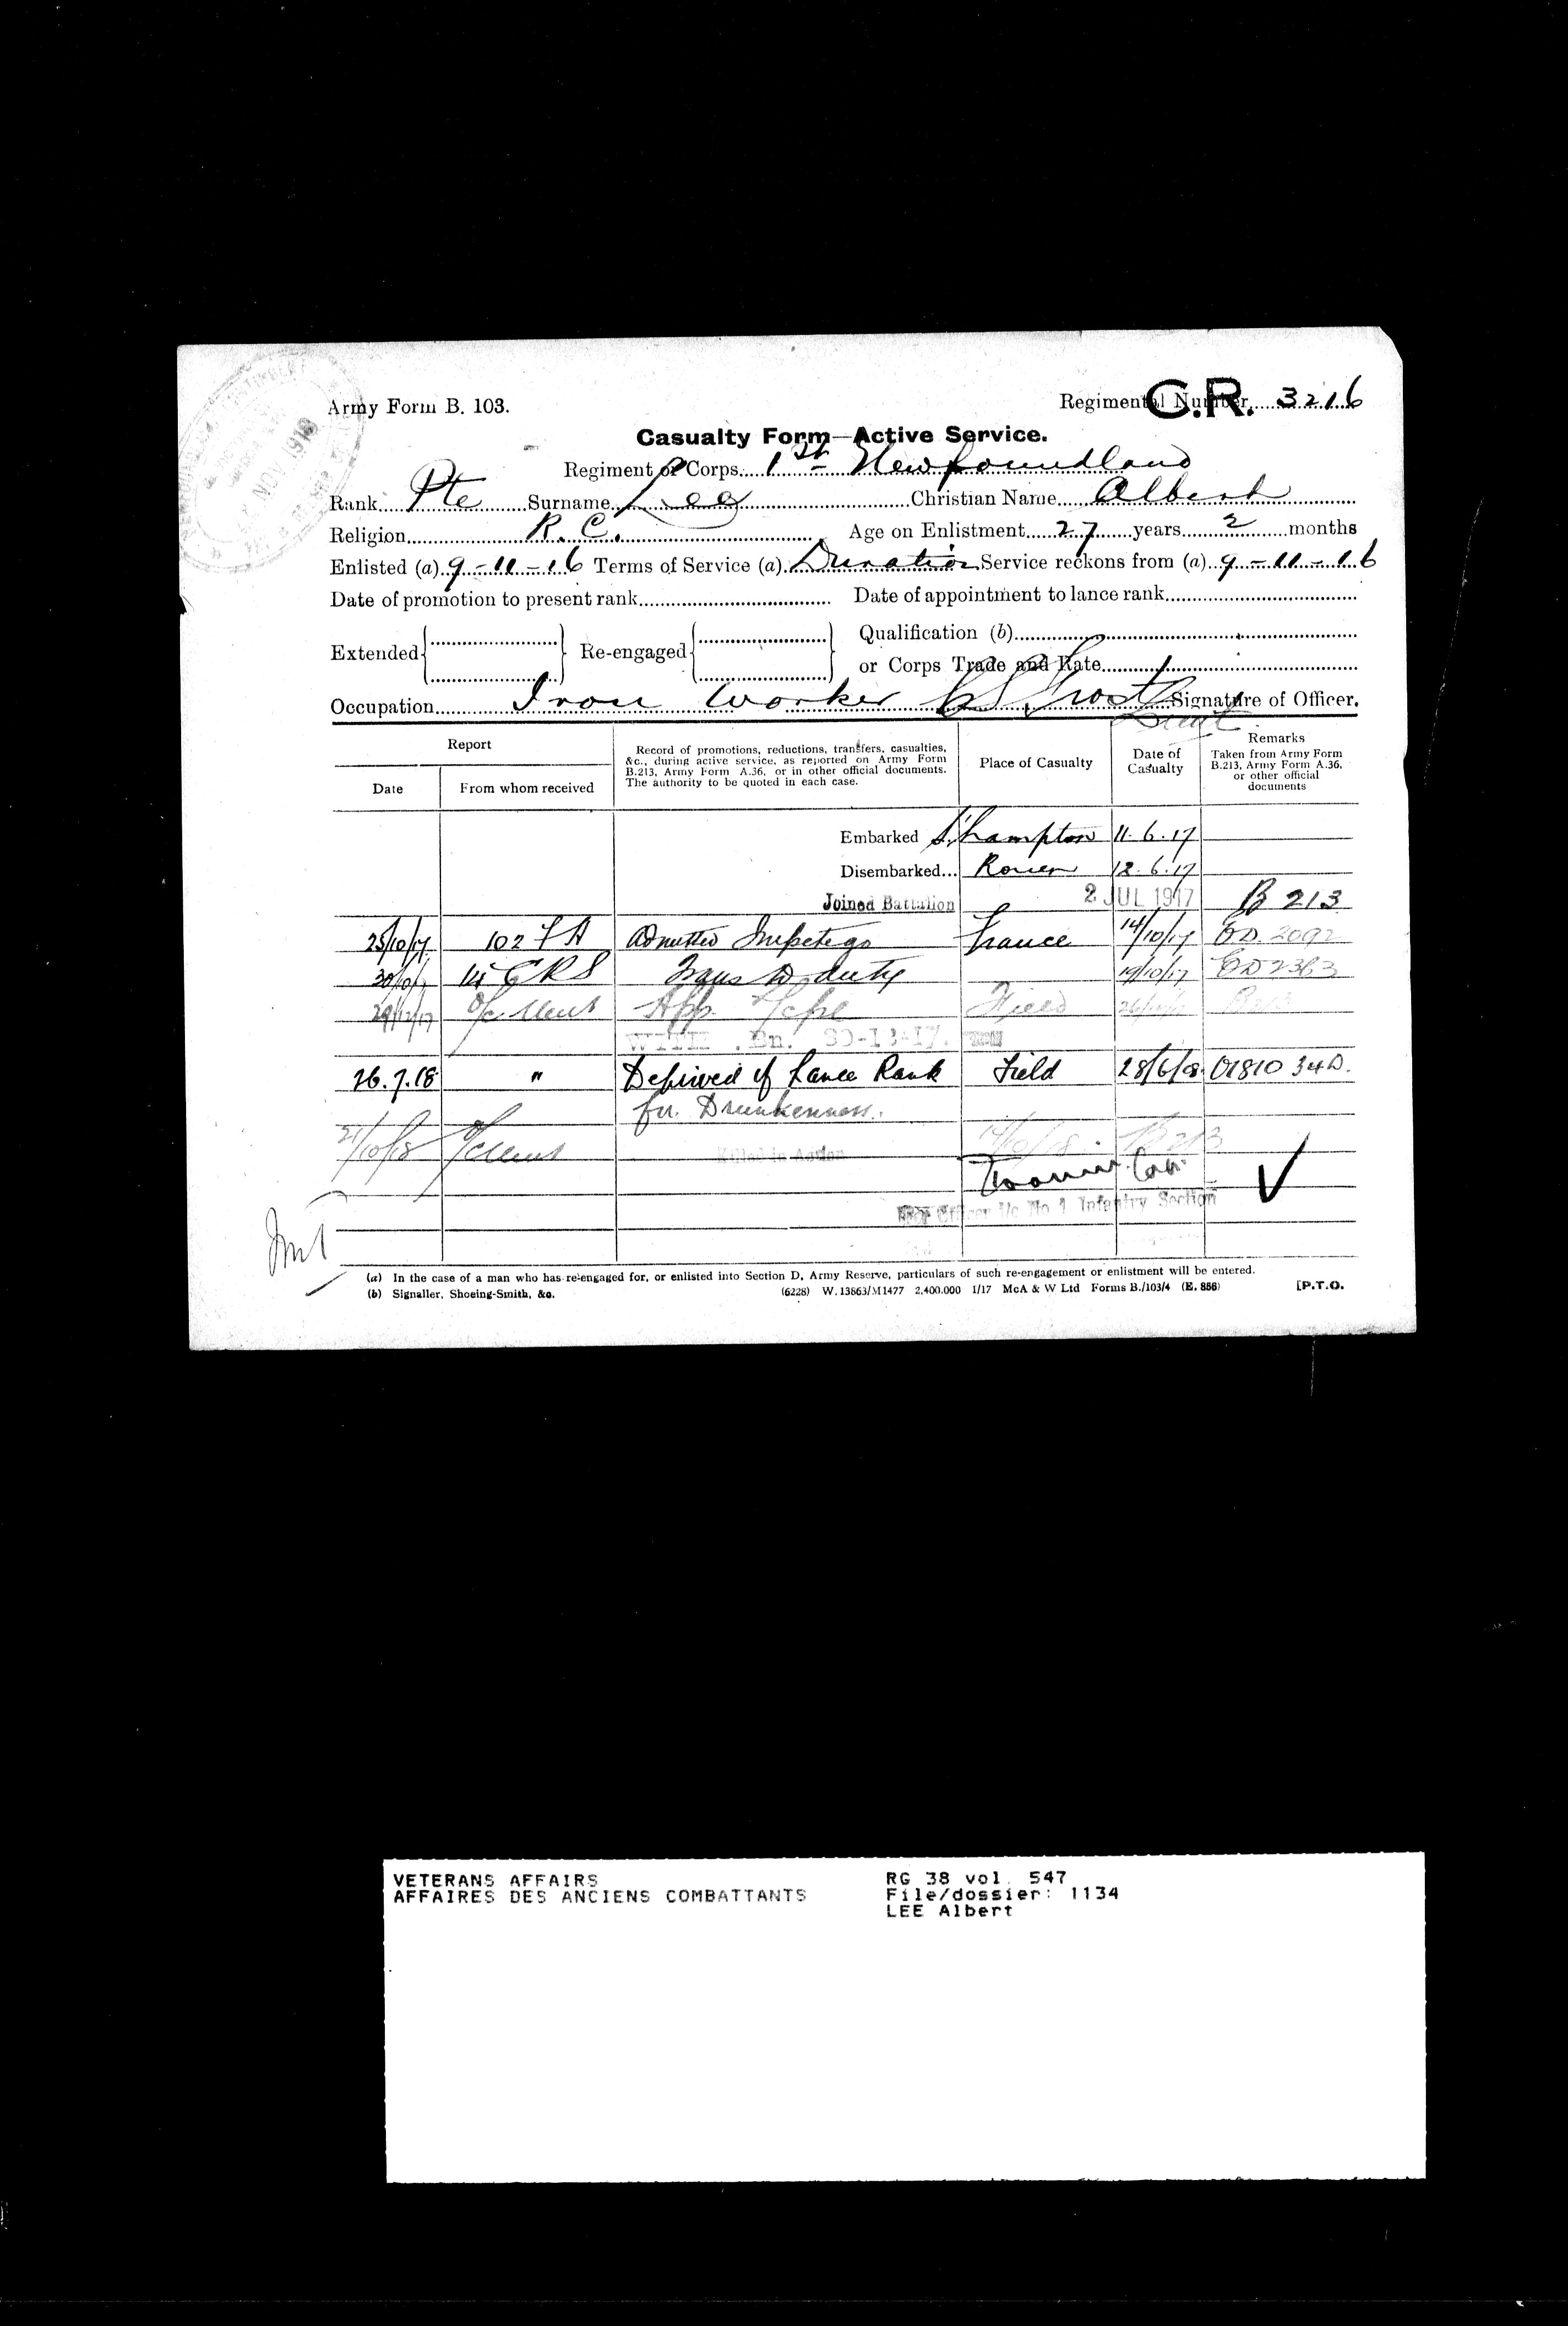 Army Form B. 103.
C.R.
Regimental Number 3216
NOV 1918
Casualty Form—Active Service.
Regiment or Corps 1st Newfoundland
Rank Pte Surname Lee Christian Name Albert
Religion R.C. Age on Enlistment 27 years 2 months
Enlisted (a) 9-11-16 Terms of Service (a) Duration Service reckons from (a) 9-11-16
Date of promotion to present rank Date of appointment to lance rank
Extended Re-engaged Qualification (b)
or Corps Trade and Rate
Occupation Iron Worker Signature of Officer.
Lieut
Report
Date From whom received
Record of promotions, reductions, transfers, casualties, &c., during active service, as reported on Army Form B.213, Army Form A.36, or in other official documents. The authority to be quoted in each case.
Place of Casualty
Date of Casualty
Remarks
Taken from Army Form B.213, Army Form A.36, or other official documents
Embarked S'hampton 11.6.17
Disembarked... Rouen 12.6.17
Joined Battalion 2 JUL 1917 B 213
25/10/17 102 FA Admitted Impetigo France 14/10/17 ED. 2092
CRS Trans to duty 19/10/17 ED 2363
29/12/17 O/c Unit App L/cpl Field B213
26.7.18 " Deprived of Lance Rank Field 28/6/18 O1810 34D.
for Drunkenness.
21/10/18 O/c Unit Killed in Action 14/10/18 B213
For Officer i/c No 1 Infantry Section
(a) In the case of a man who has re-engaged for, or enlisted into Section D, Army Reserve, particulars of such re-engagement or enlistment will be entered.
(b) Signaller, Shoeing-Smith, &c. (6228) W. 13863/M1477 2,400,000 1/17 McA & W Ltd Forms B./103/4 (E. 856) [P.T.O.
VETERANS AFFAIRS RG 38 vol. 547
AFFAIRES DES ANCIENS COMBATTANTS File/dossier: 1134
LEE Albert